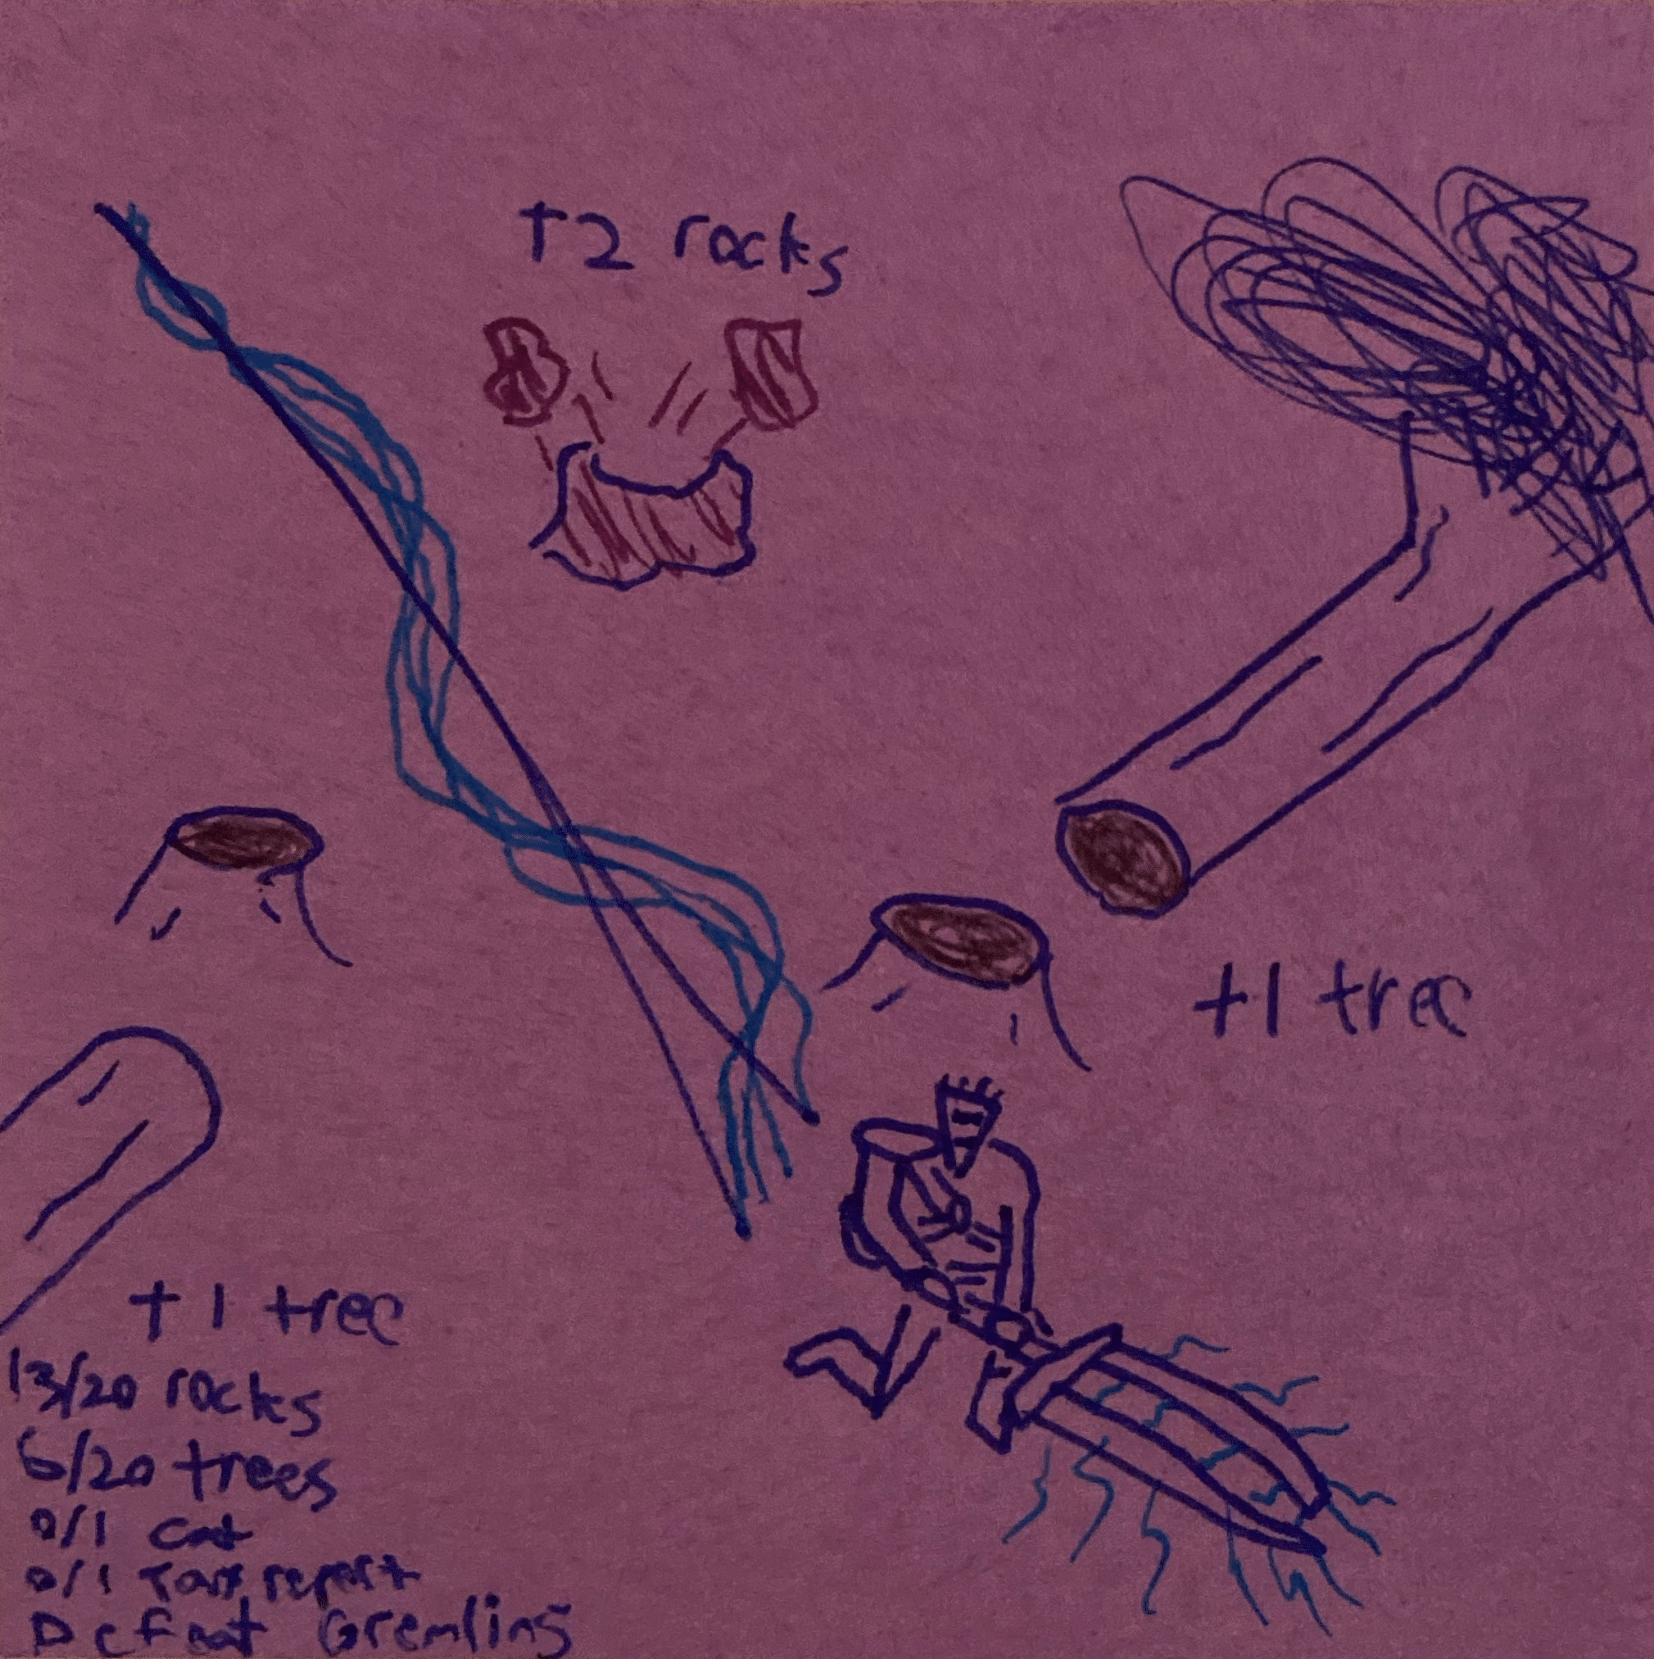 +2 rocks
+1 tree
+1 tree
13/20 rocks
6/20 trees
0/1 cat
0/1 Tax report
Defeat Gremlins